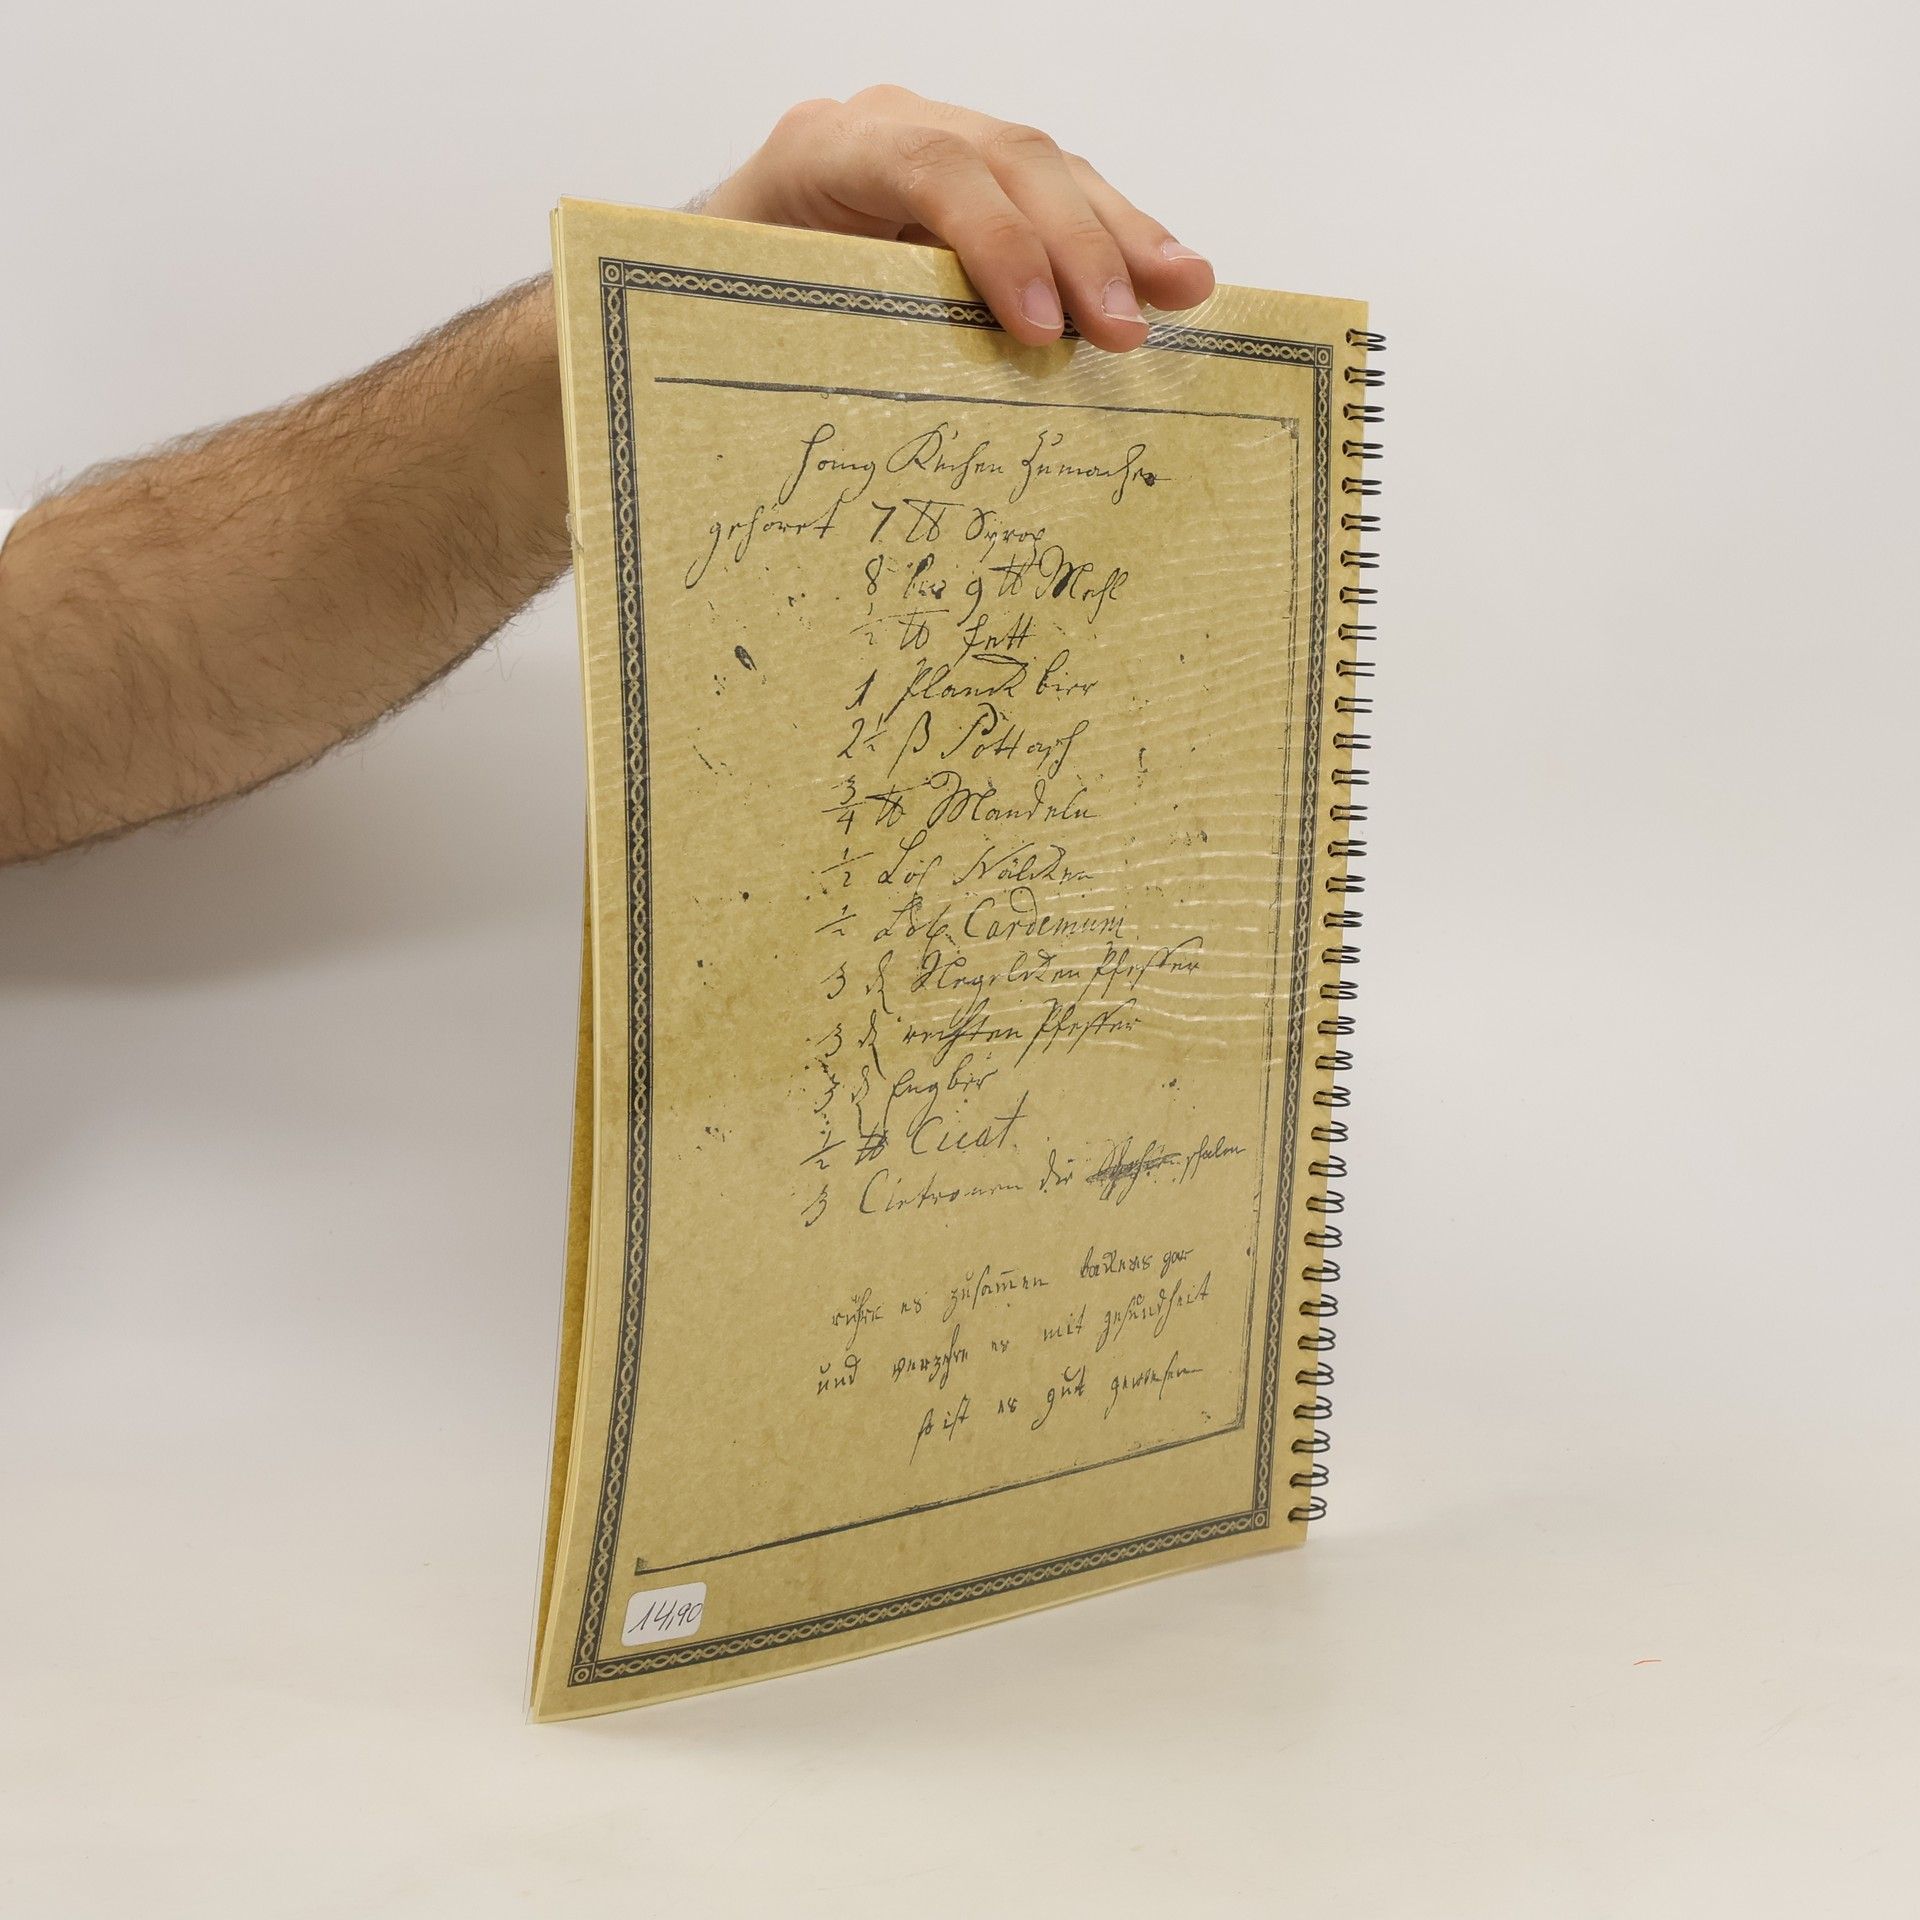 Honig Kuchen Zumachen
gehöret 7 ℔ Syrop
8 bis 9 ℔ Mehl
1/2 ℔ fett
1 Planck bier
2 1/2 ß Pottasch
3/4 ℔ Mandeln
1/2 Loh Nälcken
1/2 Loh Cardemum
3 ₰ Negelcken Pfeffer
3 ₰ rechten Pfeffer
3 ₰ Engber
1/2 ℔ Cucat
3 Cietronen die schalen
rühre es zusam̄en backens gar
und verzehre es mit gesundheit
so ist es gut gewesen
14,90